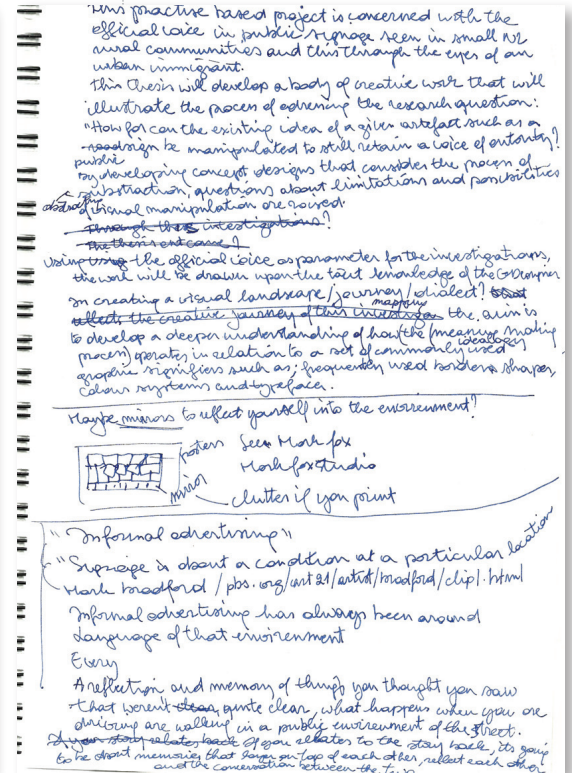 This practise based project is concerned with the
official voice in public signage seen in small NZ
rural communities and this through the eyes of an
urban immigrant.
This thesis will develop a body of creative work that will
illustrate the process of adressing the research question:
"How far can the existing idea of a given artefact such as a
roadsign be manipulated to still retain a voice of autority?
public
By developing concept designs that consider the process of
substraction, questions about limitations and possibilities
abstracting
of visual manipulation are raised.
Through this investigations?
The thesis ent case?
Using the official voice as parameter for the investigations,
the work will be drawn upon the tacit knowledge of the GDesigner
in creating a visual landscape/journey/dialect? that
mapping
reflects the creative journey of this investiga the aim is
to develop a deeper understanding of how (the meaning making
ideology
process) operates in relation to a set of commonly used
graphic signifiers such as; frequently used borders, shapes,
colour systems and typefaces.
Maybe mirrors to reflect yourself into the environment?
posters See Mark fox
Mark fox studio
mirror
clutter if you print
"Informal advertising"
"Signage is about a condition at a particular location
Mark bradford / pbs.org/art21/artist/bradford/clip1.html
Informal advertising has always been around
Language of that environment
Every
A reflection and memory of things you thought you saw
that weren't clear, quite clear, what happens when you are
driving are walking in a public environment of the street.
If you story relates back If you relates to the story back, its going
to be about memories that layer on top of each other, reflect each other
and the conversation between the two